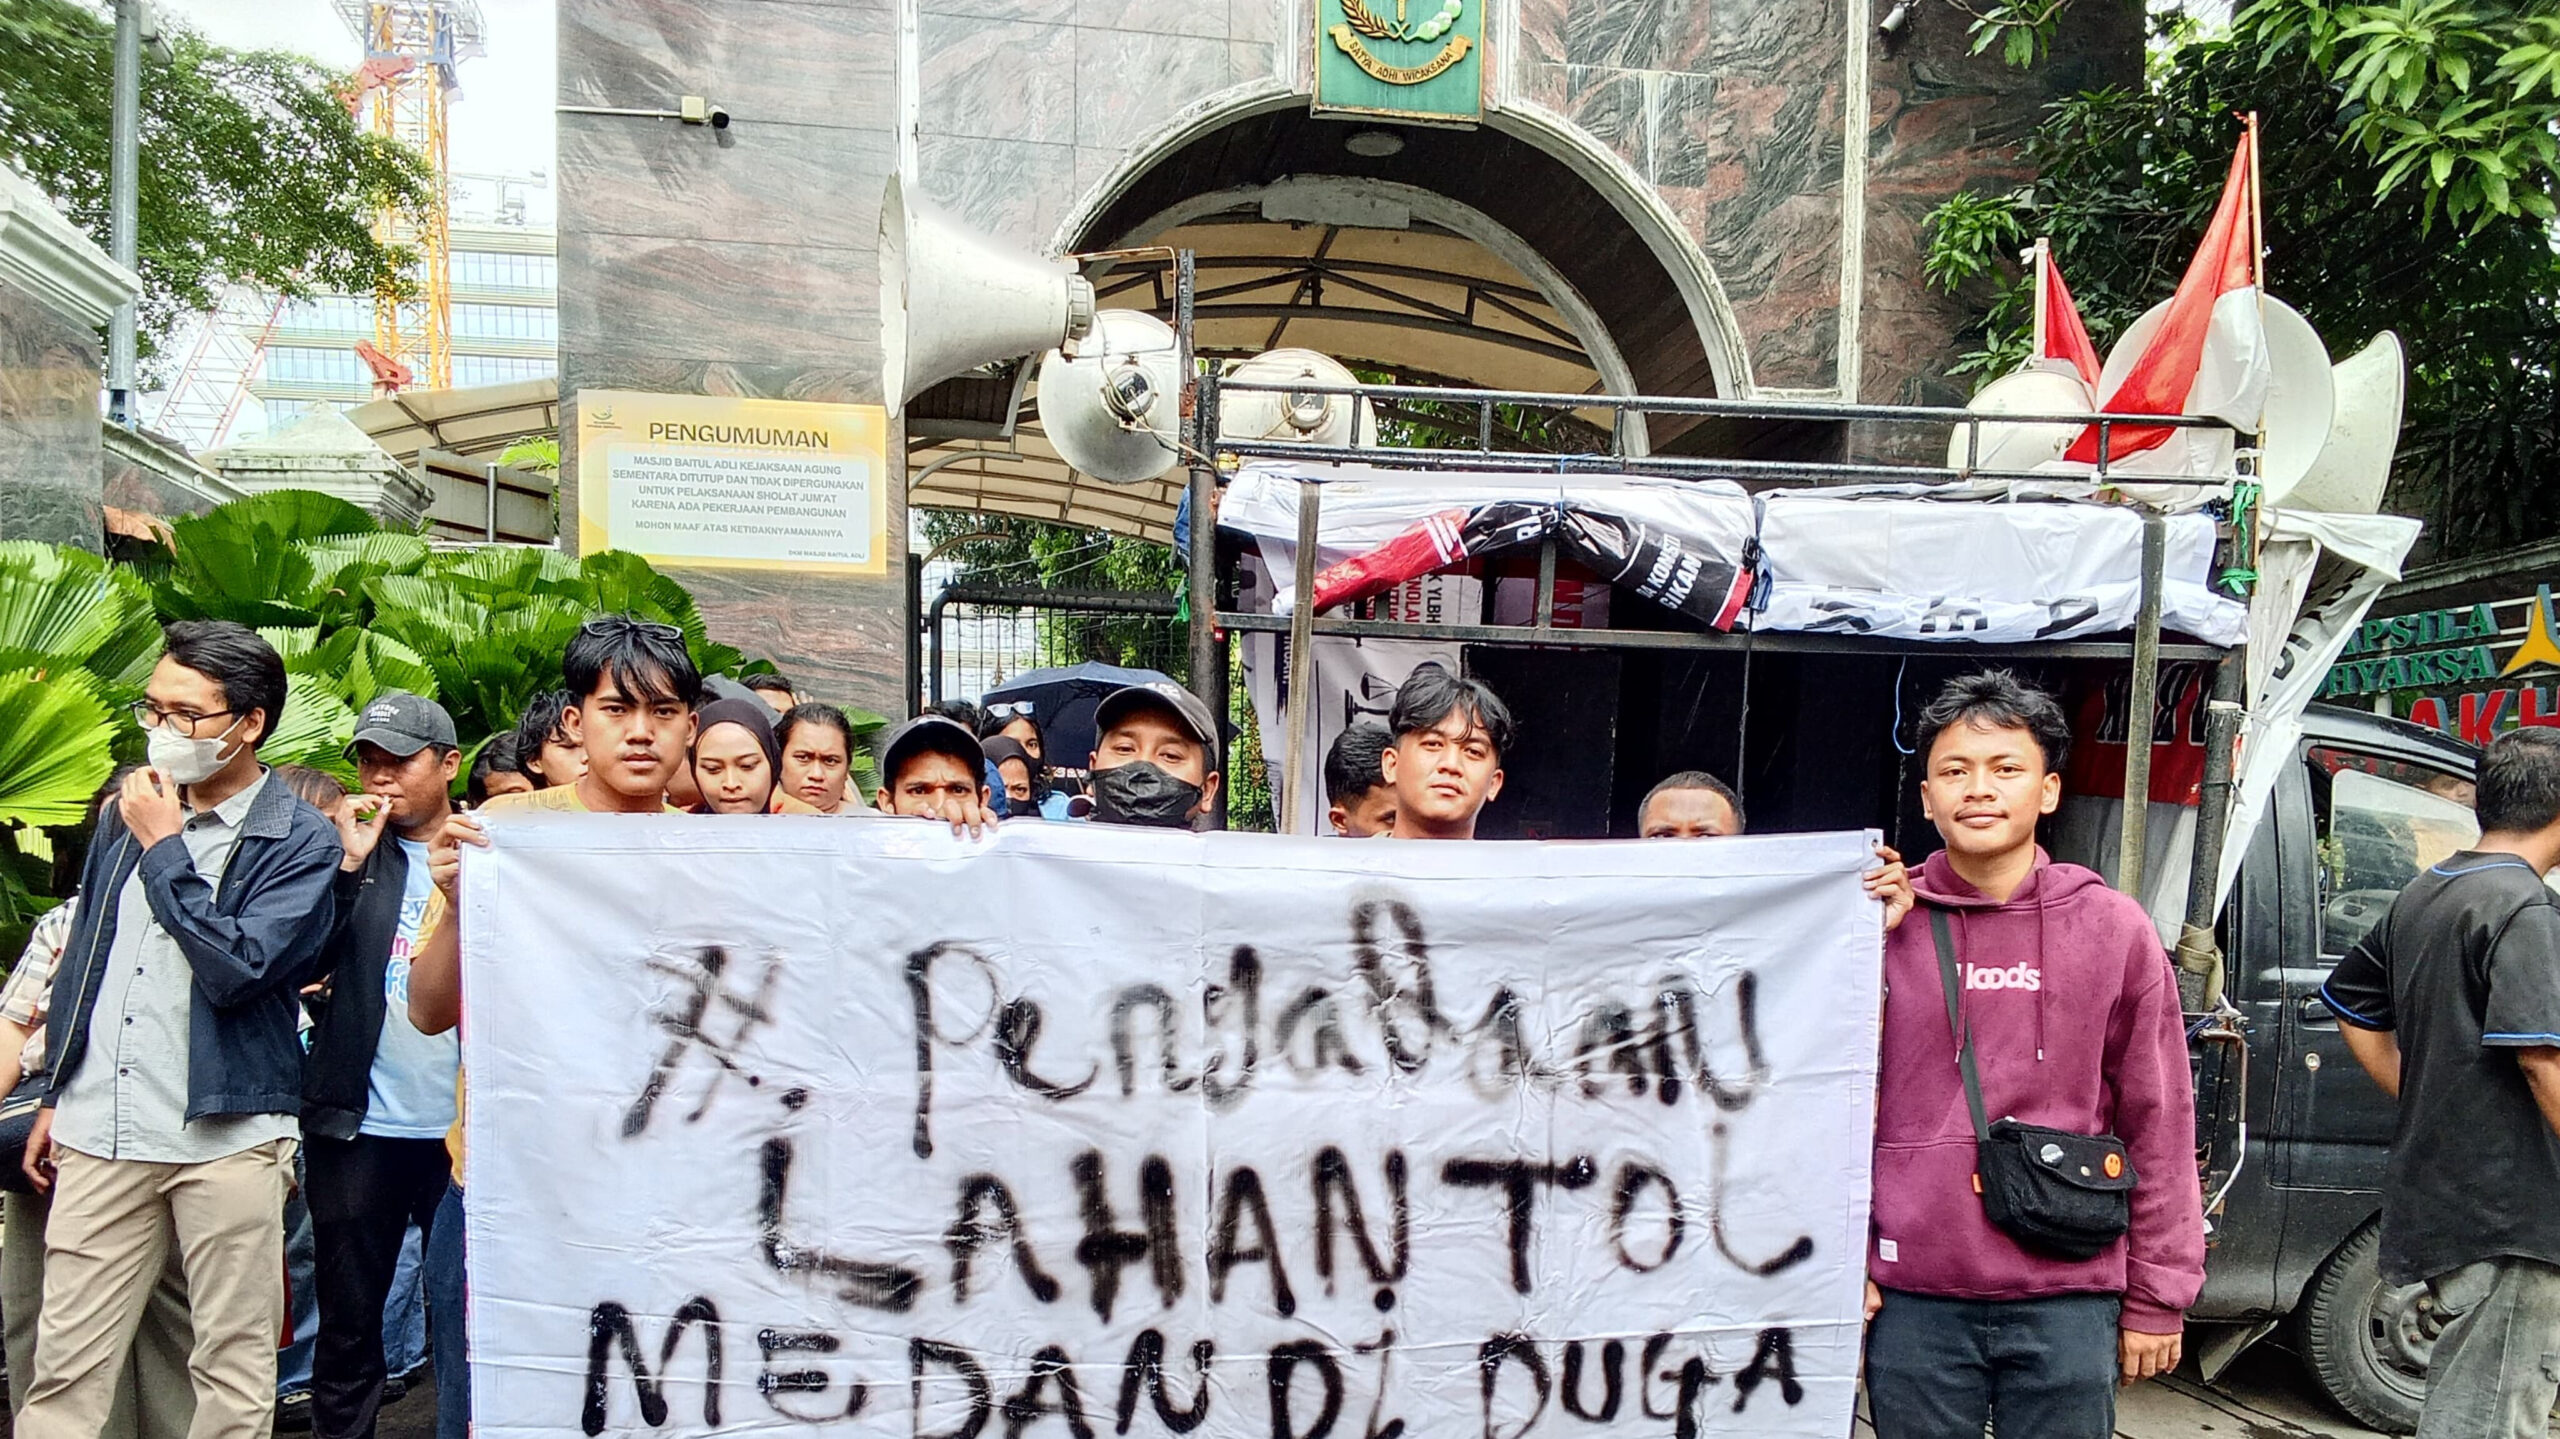 SATYA ADHI WICAKSANA
PENGUMUMAN
MASJID BAITUL ADLI KEJAKSAAN AGUNG
SEMENTARA DITUTUP DAN TIDAK DIPERGUNAKAN
UNTUK PELAKSANAAN SHOLAT JUM'AT
KARENA ADA PEKERJAAN PEMBANGUNAN
MOHON MAAF ATAS KETIDAKNYAMANANNYA
DKM MASJID BAITUL ADLI
YLBH
KOMSTI
SIKAN
APSILA
DHYAKSA
AKH
loods
#. Pengadaan
LAHAN TOL
MEDAN DI DUGA